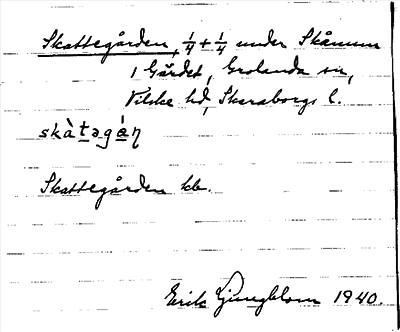 Skattegården, 1/4 + 1/4 under Skånum
1 Gärdet, Grolanda sn,
Vilske hd, Skaraborgs l.
skàtəgá̀ɳ
Skattegården kb.
Erik Ljungblom 1940.